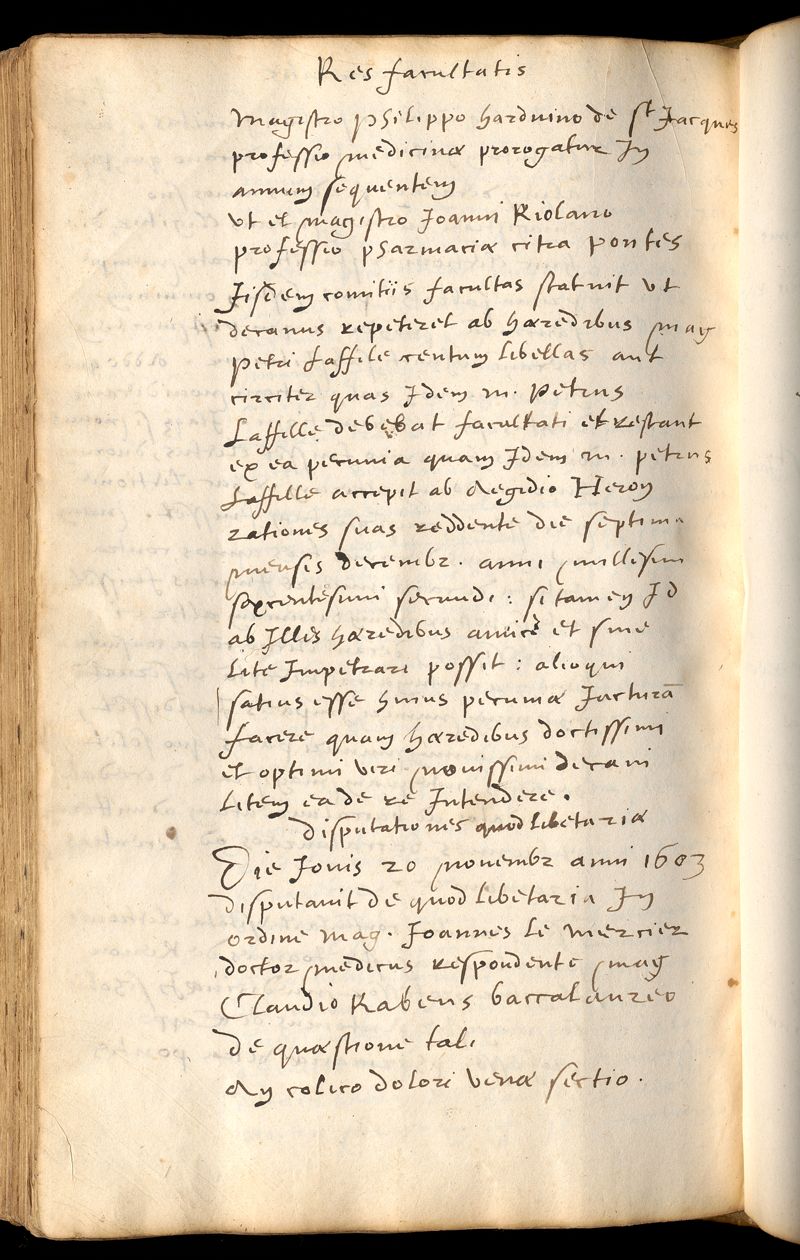 Res facultatis
Magistro Philippo Harduino de St Jacques
professio medicinæ prorogatur In
annum sequentem
Vt et magistro Joanni Riolano
professio pharmaciæ citra pontes
Jisdem comitiis facultas statuit Vt
decanus repeteret ab hæredibus mag
Petri Laffile centum libellas aut
circiter quas Idem m. Petrus
Laffille debebat facultati et restant
ex ea pecunia quam Idem m. petrus
Laffille accepit ab Aegidio Heron
rationes suas reddente die septima
mensis decembr. anni millesimi
sexcentesimi secundi : si tamen Id
ab Illis hæredibus amicè et sine
Lite Impetrari possit : alioqui
satius esse huius pecuniæ Jacturā
facere quam hæredibus doctissimi
et optimi viri novissimi decani
Litem ea de re Intendere.
disputationes quodlibetariæ
Die Jovis 20 novembr anni 1603
disputavit de quodlibetaria In
ordine Mag. Joannes Le Mercier
doctor medicus respondente mag
Claudio Rabeus baccalaureo
de quæstione tali
An colico dolori venæ sectio.